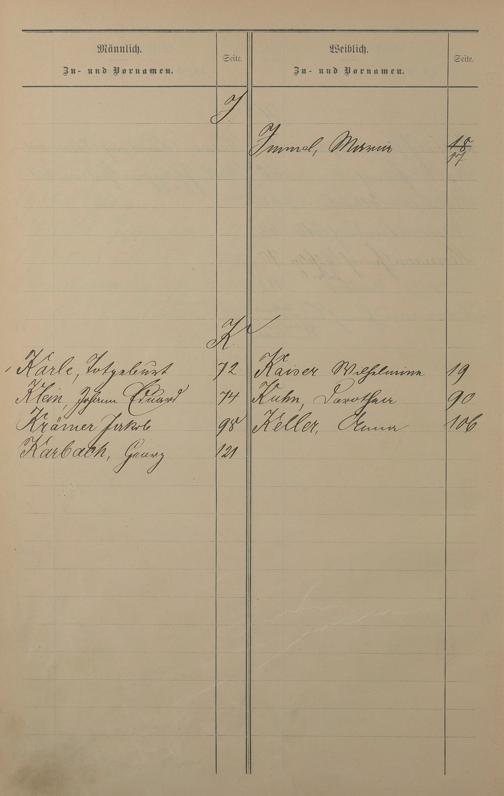 Männlich.
Zu- und Vornamen.
Seite.
Weiblich.
Zu- und Vornamen.
Seite.
J
Immel, Maria 18
17
K
Karle, Totgeburt 72
Kaiser Wilhelmine 19
Klein, Johann Eduard 74
Kuhn, Dorothea 90
Krämer Jakob 95
Keller, Anna 106
Karbach, Georg 121